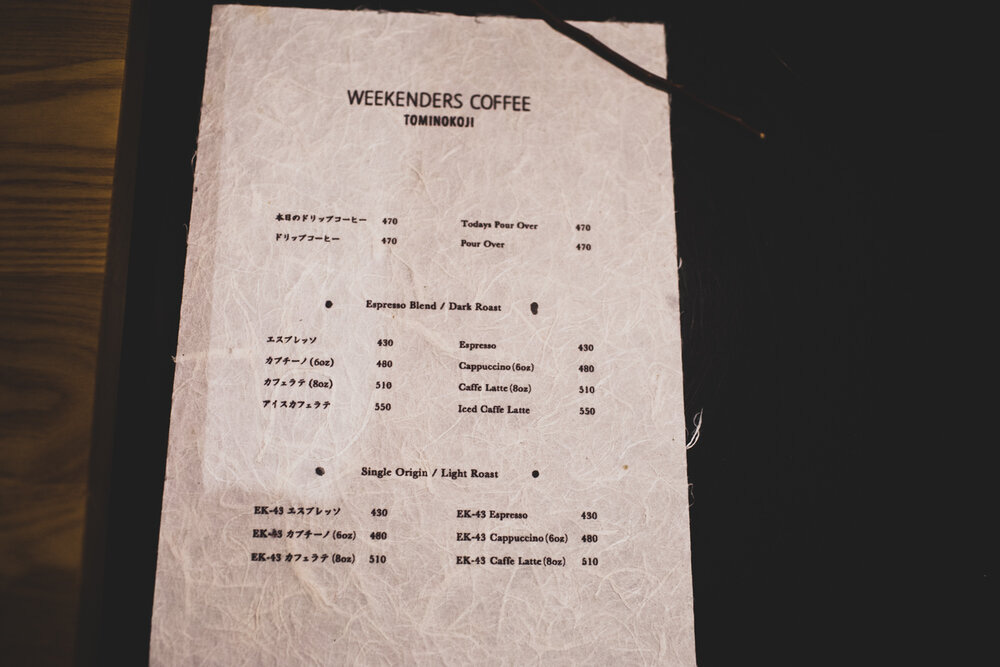 WEEKENDERS COFFEE
TOMINOKOJI
本日のドリップコーヒー 470 Todays Pour Over 470
ドリップコーヒー 470 Pour Over 470
Espresso Blend / Dark Roast
エスプレッソ 430 Espresso 430
カプチーノ (6oz) 480 Cappuccino (6oz) 480
カフェラテ (8oz) 510 Caffe Latte (8oz) 510
アイスカフェラテ 550 Iced Caffe Latte 550
Single Origin / Light Roast
EK-43 エスプレッソ 430 EK-43 Espresso 430
EK-43 カプチーノ (6oz) 480 EK-43 Cappuccino (6oz) 480
EK-43 カフェラテ (8oz) 510 EK-43 Caffe Latte (8oz) 510